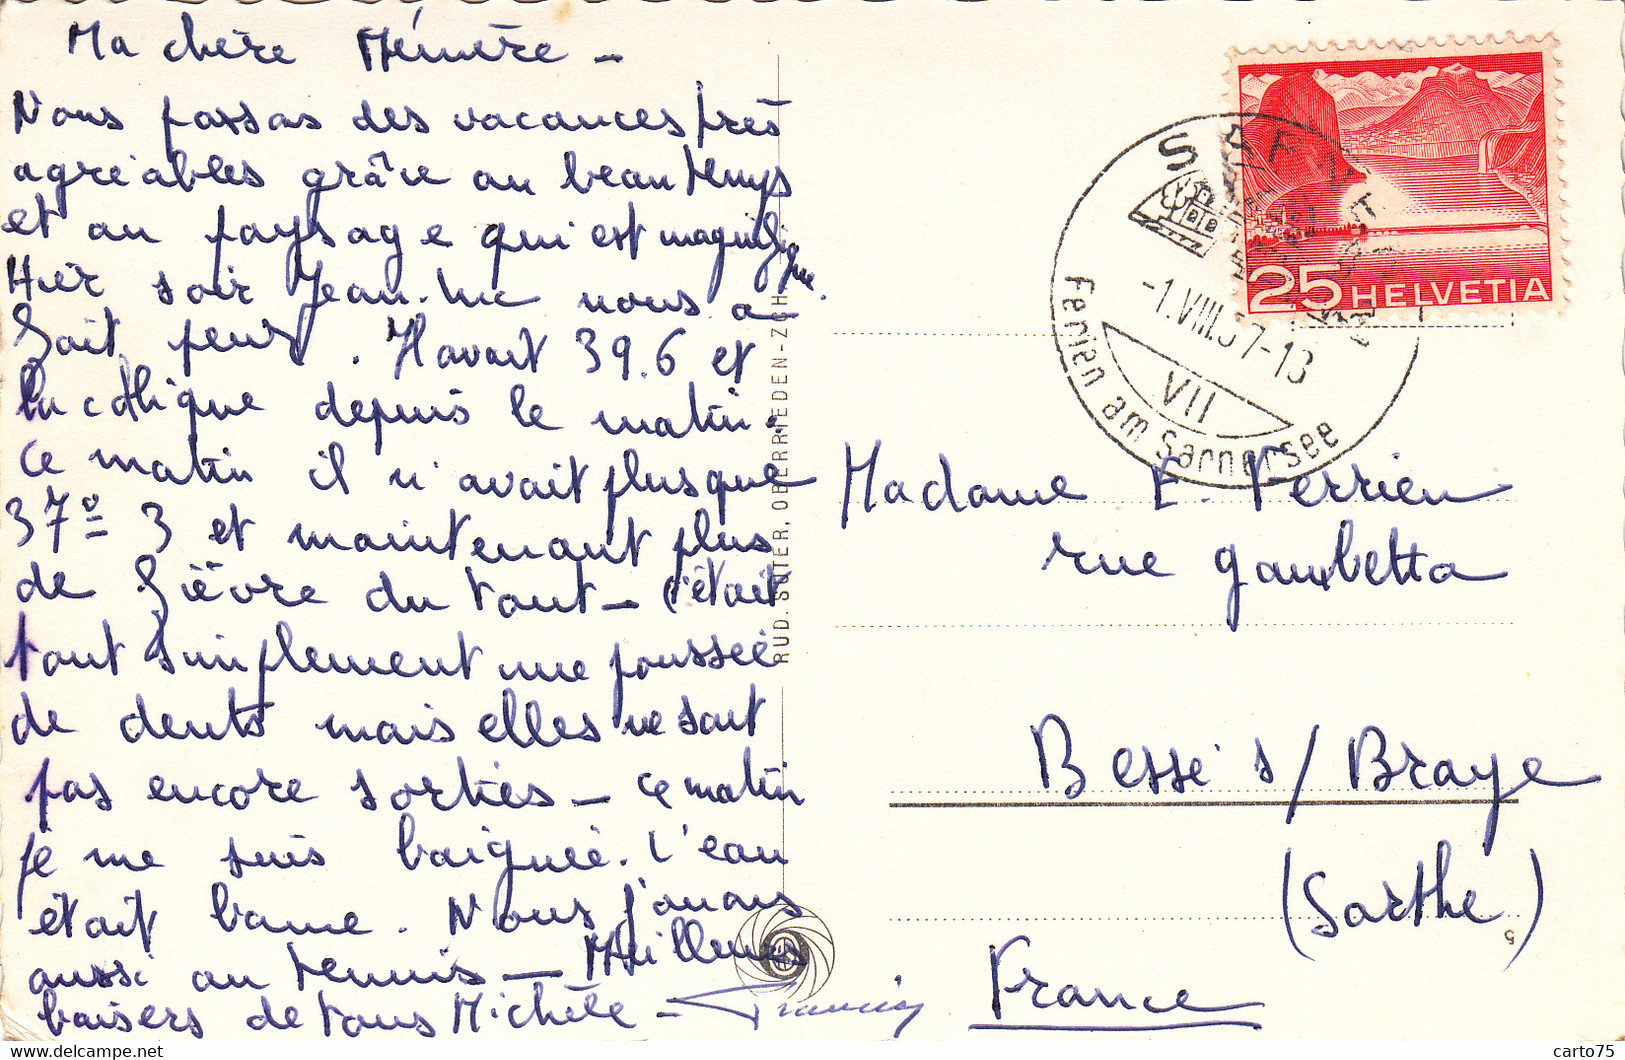 Ma chère Mémère –
Nous passons des vacances très
agréables grâce au beau temps
et au paysage qui est magnifique.
Hier soir Jean-Luc nous a
fait peur. Il avait 39.6 et
la colique depuis le matin.
Ce matin il n'avait plus que
37° 3 et maintenant plus
de fièvre du tout – C'était
tout simplement une poussée
de dents mais elles ne sont
pas encore sorties – Ce matin
je me suis baignée. L'eau
était bonne. Nous jouons
aussi au tennis – Meilleurs
baisers de tous Michèle – Francis
RUD. SUTER, OBERRIEDEN-ZCH
25 HELVETIA
-1.VIII.57-13
VII
Ferien am Sarnersee
Madame E. Verrien
rue gambetta
Bessé s/ Braye
(Sarthe)
5
France
carto75